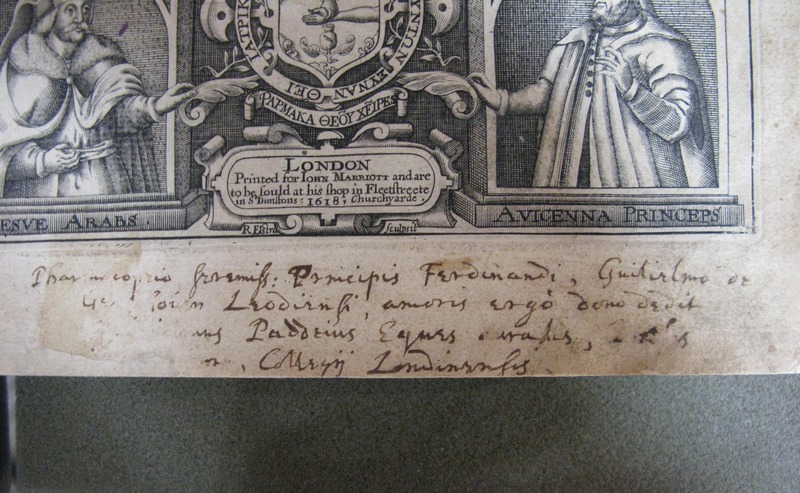 ΙΑΤΡΙΚ
ΥΝΤΩΝ
ΕΥΧΝΑΝ ΘΕΙ
ΦΑΡΜΑΚΑ ΘΕΟΥ ΧΕΙΡΕΣ
LONDON
Printed for IOHN MARRIOTT and are
to be sould at his shop in Fleetstreete
in St Dunstons: 1618; Churchyarde
R Elstra sculpsit
ESVE ARABS.
AVICENNA PRINCEPS
Pharmacopeio sereniss: Principis Ferdinandi, Guilielmo de
Leodiensi, amoris ergo dono dedit
Paddeius Eques
Collegij Londinensis.